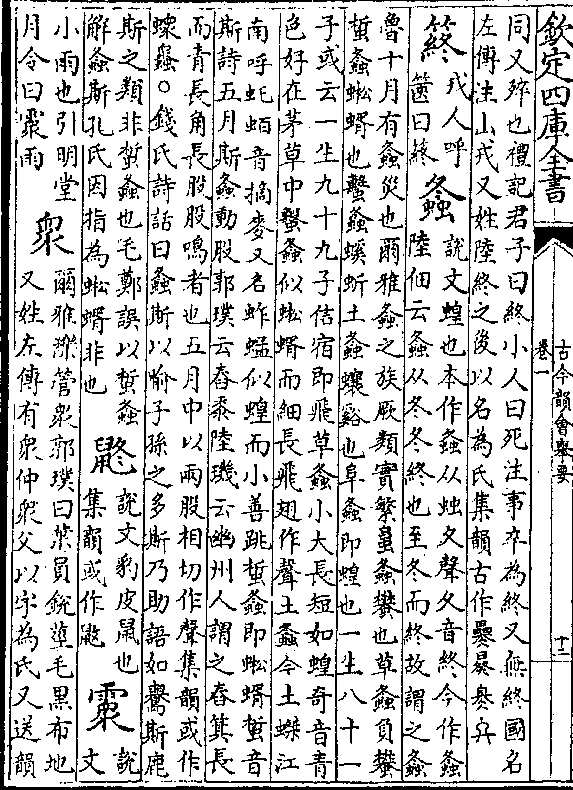 欽定四庫全書
古今韻會舉要
卷一
十二
同又殍也禮記君子曰終小人曰死注事卒為終又無終國名
左傳注山戎又姓陸終之後以名為氏集韻古作
䈺
戎人呼
篋曰䈺
螽
説文蝗也本作螽从䖵夂聲夂音終今作螽
陸佃云螽从冬冬終也至冬而終故謂之螽
魯十月有螽災也爾雅螽之族厥類實繁蛗螽蠜也草螽負蠜
蜤螽蜙蝑也蟿螽螇蚸土螽蠰谿也阜螽即蝗也一生八十一
子或云一生九十九子信宿即飛草螽小大長短如蝗奇音青
色好在茅草中蟿螽似蜙蝑而細長飛翅作聲土螽今土𧒂江
南呼虴蛨音摘麥又名蚱蜢似蝗而小善跳蜤螽即蜙蝑蜤音
斯詩五月斯螽動股郭璞云舂黍陸璣云幽州人謂之舂箕長
而青長角長股股鳴者也五月中以兩股相切作聲集韻或作
○錢氏詩話曰螽斯以喻子孫之多斯乃助語如鸒斯鹿
斯之類非蜤螽也毛鄭誤以蜤螽
解螽斯孔氏因指為蜙蝑非也
鼨
説文豹皮鼠也
集韻或作
霥
説
文
小雨也引明堂
月令曰霥雨
眾
爾雅濼管眾郭璞曰葉員銳莖毛黑布地
又姓左傳有眾仲眾父以字為氏又送韻